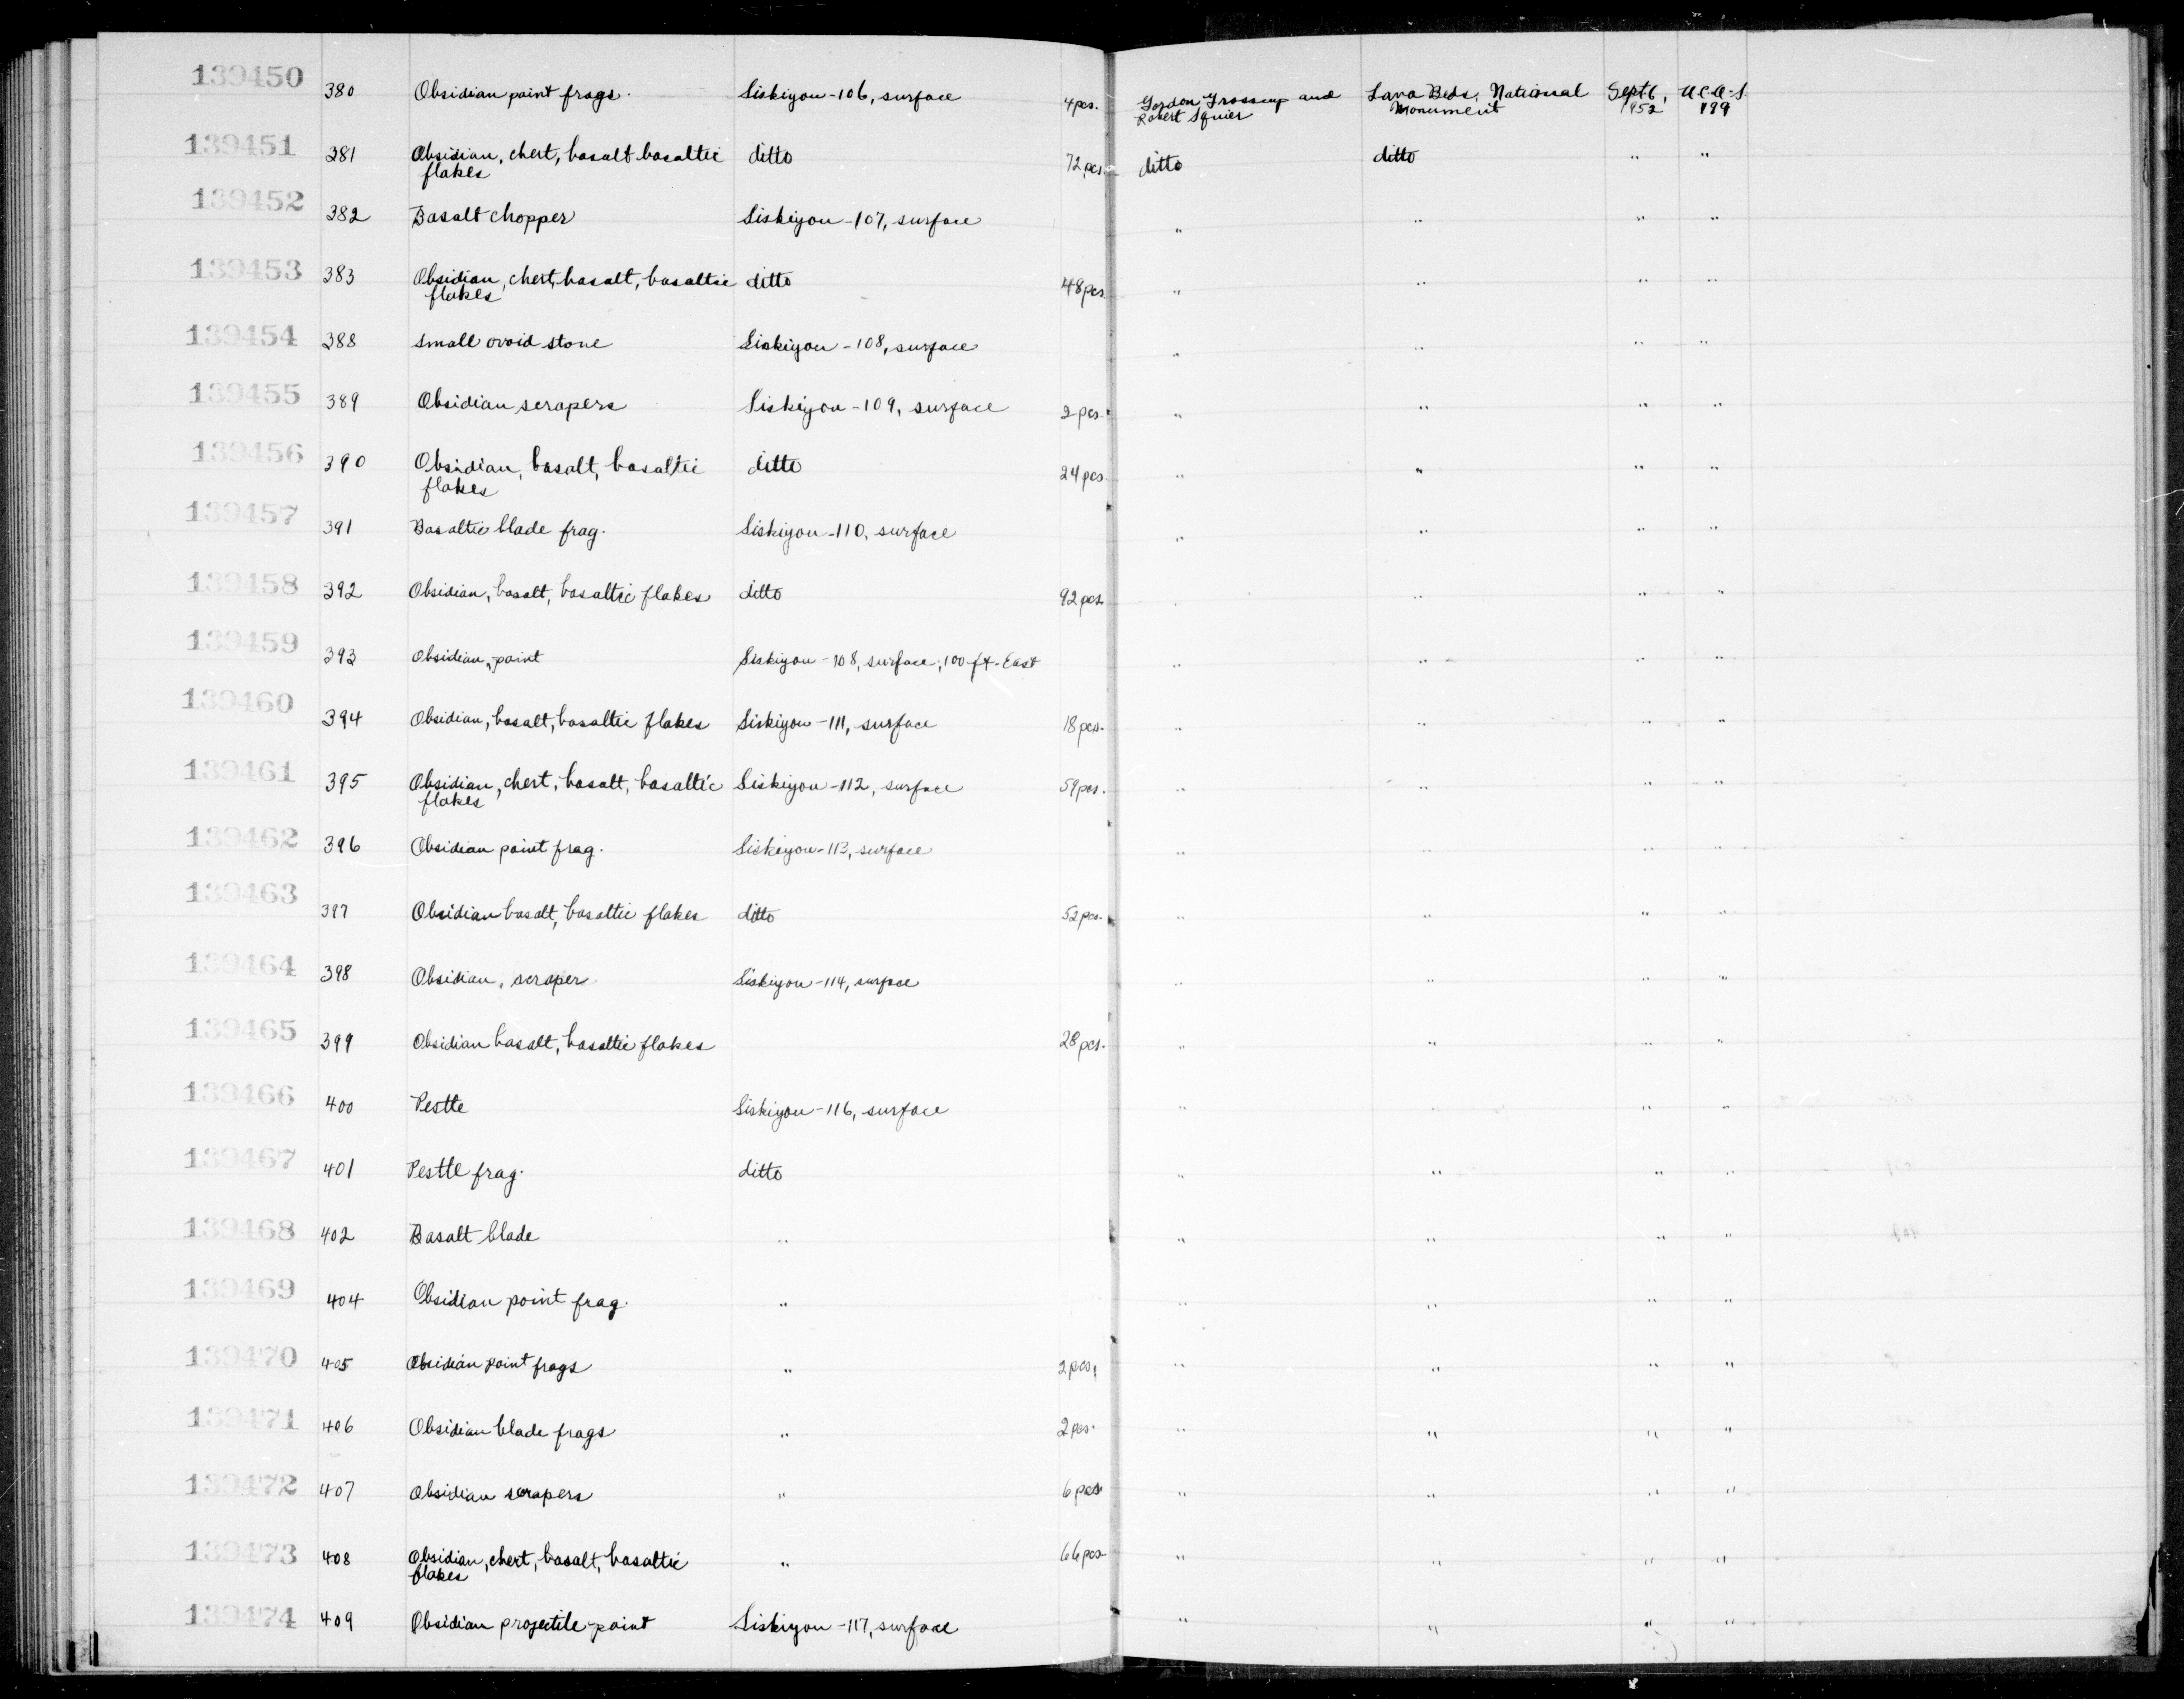 139450 380 Obsidian point frags. Siskiyou-106, surface 4 pcs. Gordon Grosscup and Lava Beds, National Sept 6, UCAS
Robert Squier Monument 1952 199
139451 381 Obsidian, chert, basalt basaltic ditto 72 pcs. ditto ditto " "
flakes
139452 382 Basalt chopper Siskiyou-107, surface " " " "
139453 383 Obsidian, chert, basalt, basaltic ditto 48 pcs. " " " "
flakes
139454 388 Small ovoid stone Siskiyou-108, surface " " " "
139455 389 Obsidian scrapers Siskiyou-109, surface 2 pcs. " " " "
139456 390 Obsidian, basalt, basaltic ditto 24 pcs. " " " "
flakes
139457 391 Basaltic blade frag. Siskiyou-110, surface " " " "
139458 392 Obsidian, basalt, basaltic flakes ditto 92 pcs. " " " "
139459 393 Obsidian, point Siskiyou-108, surface, 100 ft. East " " " "
139460 394 Obsidian, basalt, basaltic flakes Siskiyou-111, surface 18 pcs. " " " "
139461 395 Obsidian, chert, basalt, basaltic Siskiyou-112, surface 59 pcs. " " " "
flakes
139462 396 Obsidian point frag. Siskiyou-113, surface " " " "
139463 397 Obsidian basalt, basaltic flakes ditto 52 pcs. " " " "
139464 398 Obsidian, scraper Siskiyou-114, surface " " " "
139465 399 Obsidian basalt, basaltic flakes 28 pcs. " " " "
139466 400 Pestle Siskiyou-116, surface " " " "
139467 401 Pestle frag. ditto " " " "
139468 402 Basalt blade " " " " "
139469 404 Obsidian point frag. " " " " "
139470 405 Obsidian point frags " 2 pcs. " " " "
139471 406 Obsidian blade frags " 2 pcs. " " " "
139472 407 Obsidian scrapers " 6 pcs. " " " "
139473 408 Obsidian, chert, basalt, basaltic " 66 pcs. " " " "
flakes
139474 409 Obsidian projectile-point Siskiyou-117, surface " " " "